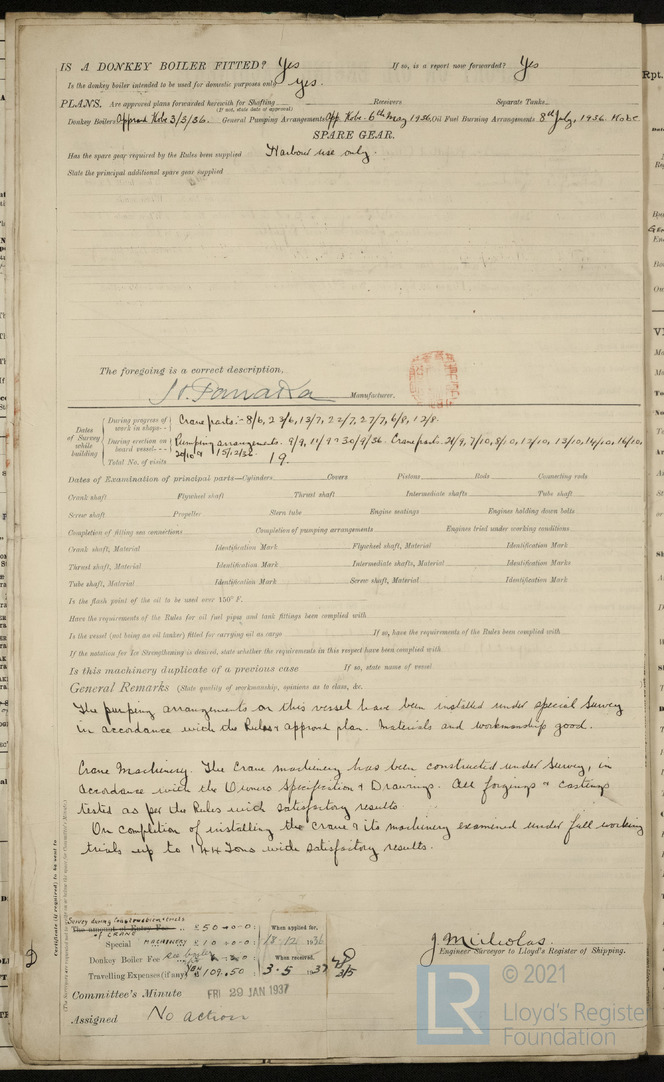 IS A DONKEY BOILER FITTED? Yes If so, is a report now forwarded? Yes
Is the donkey boiler intended to be used for domestic purposes only yes.
PLANS. Are approved plans forwarded herewith for Shafting Receivers Separate Tanks
(If not, state date of approval)
Donkey Boilers Approd Kobe 3/3/36. General Pumping Arrangements App. Kobe. 6th May 1936. Oil Fuel Burning Arrangements 8th July, 1936. Kobe
SPARE GEAR.
Has the spare gear required by the Rules been supplied Harbour use only.
State the principal additional spare gear supplied
The foregoing is a correct description,
Manufacturer.
Dates of Survey while building
During progress of work in shops - - Crane parts:- 8/6, 23/6, 13/7, 22/7, 27/7, 6/8, 12/8.
During erection on board vessel - - - Pumping arrangements. 9/9, 11/9 30/9/36. Crane parts. 21/9, 7/10, 8/10, 12/10, 13/10, 14/10, 16/10,
15/12/36.
Total No. of visits 19.
Dates of Examination of principal parts—Cylinders Covers Pistons Rods Connecting rods
Crank shaft Flywheel shaft Thrust shaft Intermediate shafts Tube shaft
Screw shaft Propeller Stern tube Engine seatings Engines holding down bolts
Completion of fitting sea connections Completion of pumping arrangements Engines tried under working conditions
Crank shaft, Material Identification Mark Flywheel shaft, Material Identification Mark
Thrust shaft, Material Identification Mark Intermediate shafts, Material Identification Marks
Tube shaft, Material Identification Mark Screw shaft, Material Identification Mark
Is the flash point of the oil to be used over 150° F.
Have the requirements of the Rules for oil fuel pipes and tank fittings been complied with
Is the vessel (not being an oil tanker) fitted for carrying oil as cargo If so, have the requirements of the Rules been complied with
If the notation for Ice Strengthening is desired, state whether the requirements in this respect have been complied with
Is this machinery duplicate of a previous case If so, state name of vessel
General Remarks (State quality of workmanship, opinions as to class, &c.
The pumping arrangements on this vessel have been installed under special Survey
in accordance with the Rules & approvd plan. Materials and workmanship good.
Crane Machinery. The Crane machinery has been constructed under Survey, in
accordance with the Owners Specification & Drawings. All forgings & castings
tested as per the Rules with satisfactory results
On completion of installing the crane & its machinery examined under full working
trials up to 144 Tons with satisfactory results.
Survey during Construction & trials
The amount of Entry Fee .. £50-0-0: When applied for,
of CRANE
Special MACHINERY £10-0-0: 18.12.1936
Donkey Boiler Fee When received,
Travelling Expenses (if any) YEN 109.50: 3.5.1937
3/5
J. M. Nicholas.
Engineer Surveyor to Lloyd's Register of Shipping.
Committee's Minute FRI 29 JAN 1937
Assigned No action
© 2021
Lloyd's Register
Foundation
LR
Rpt.